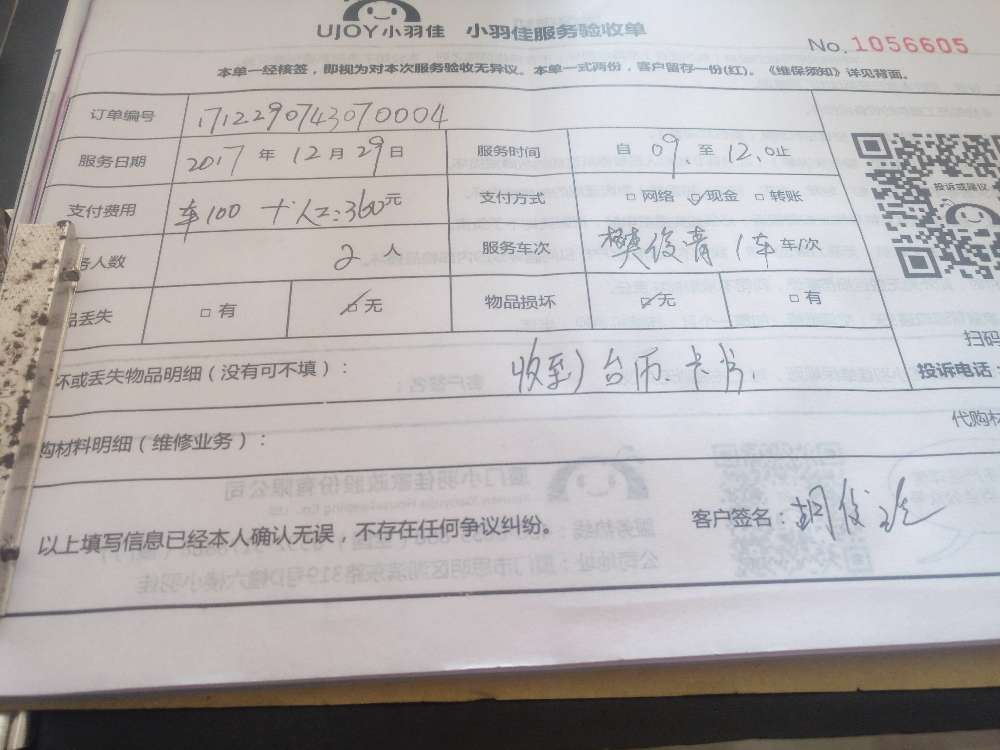 UJOY小羽佳 小羽佳服务验收单
No. 1056605
本单一经核签，即视为对本次服务验收无异议。本单一式两份，客户留存一份(红)。《维保须知》详见背面。
订单编号 1712290743070004
服务日期 2017 年 12 月 29 日 服务时间 自 09 至 12.0止
支付费用 车100 十人工:360元 支付方式 □ 网络 ☑现金 □ 转账
务人数 2 人 服务车次 樊俊青 1车 车/次
品丢失 □ 有 ☑无 物品损坏 ☑无 □ 有
投诉或建议
扫码
坏或丢失物品明细（没有可不填）： 收到台币.卡书. 投诉电话：
购材料明细（维修业务）： 代购材
以上填写信息已经本人确认无误，不存在任何争议纠纷。 客户签名：胡俊